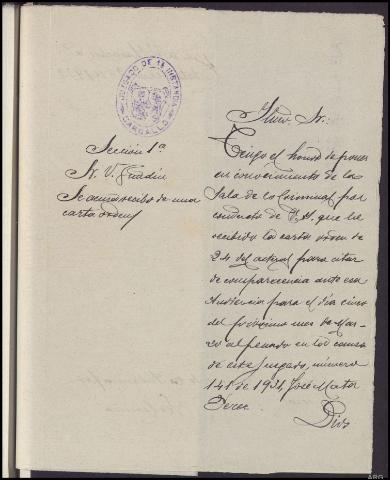 JUZGADO DE 1ª INSTANCIA
CARBALLO
Sección 1ª
Sr. V.
Se acusa recibo de una
carta orden
Ilmo. Sr.:
Tengo el honor de poner
en conocimiento de la
Sala de lo Criminal por
conducto de V. I. que he
recibido la carta orden de
24 del actual para citar
de comparecencia ante esa
Audiencia para el dia cinco
del proximo mes de Mar-
zo al penado en la causa
de este Juzgado, número
148 de 1931, José
Dios